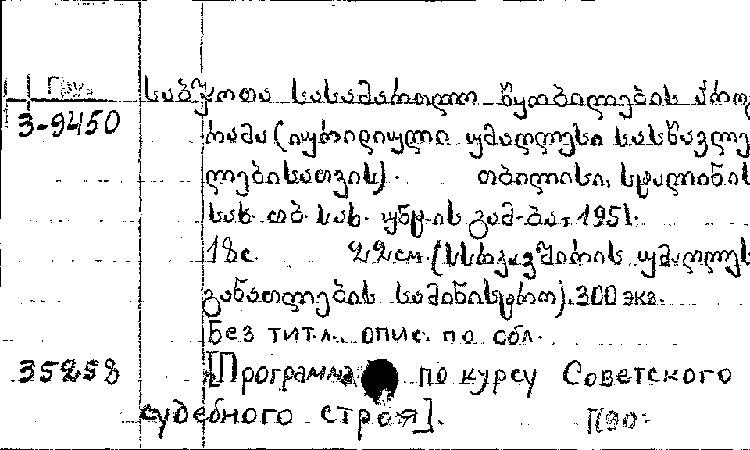 Груз. საბჭოთა სასამართლო წყობილების პროგ
3-9450 რამა (იურიდიული უმაღლესი სასწავლე
ბლებისათვის). თბილისი, სტალინის
სახ. თბ. სახ. უნივ-ის გამ-ბა, 1951.
18с. 22см. (სსრკავშირის უმაღლეს
განათლების სამინისტრო). 300 экз.
Без тит.л. опис. по обл.
35258 [Программа по курсу Советского
судебного строя]. П90: